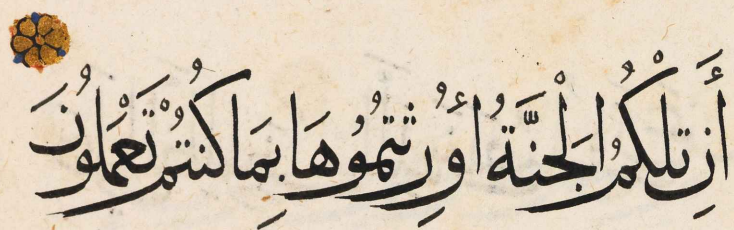 أَن تِلْكُمُ الْجَنَّةُ أُورِثْتُمُوهَا بِمَا كُنتُمْ تَعْمَلُونَ